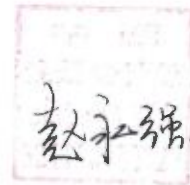 赵永强